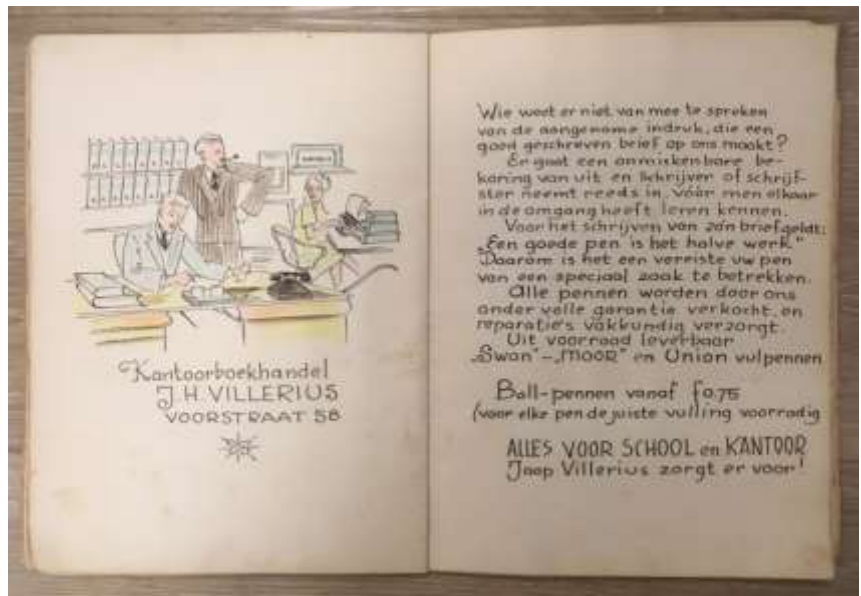 Kantoorboekhandel
J H VILLERIUS
VOORSTRAAT 58
Wie weet er niet van mee te spreken
van de aangename indruk, die een
goed geschreven brief op ons maakt?
Er gaat een onmiskenbare be-
koring van uit en schrijver of schrijf-
ster neemt reeds in, vóór men elkaar
in de omgang heeft leren kennen.
Voor het schrijven van zo'n brief geldt:
„Een goede pen is het halve werk."
Daarom is het een vereiste uw pen
van een speciaal zaak te betrekken.
Alle pennen worden door ons
onder volle garantie verkocht, en
reparatie's vakkundig verzorgt.
Uit voorraad leverbaar
„Swan"-„MOOR" en Union vulpennen
Ball-pennen vanaf f0.75
(voor elke pen de juiste vulling voorradig
ALLES VOOR SCHOOL en KANTOOR
Jaap Villerius zorgt er voor!